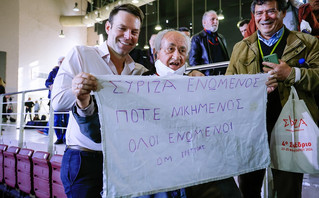 ΣΥΡΙΖΑ ΕΝΩΜΕΝΟΣ
ΠΟΤΕ ΝΙΚΗΜΕΝΟΣ
ΟΛΟΙ ΕΝΩΜΕΝΟΙ
ΣΥΡΙΖΑ
4ο Συνέδριο